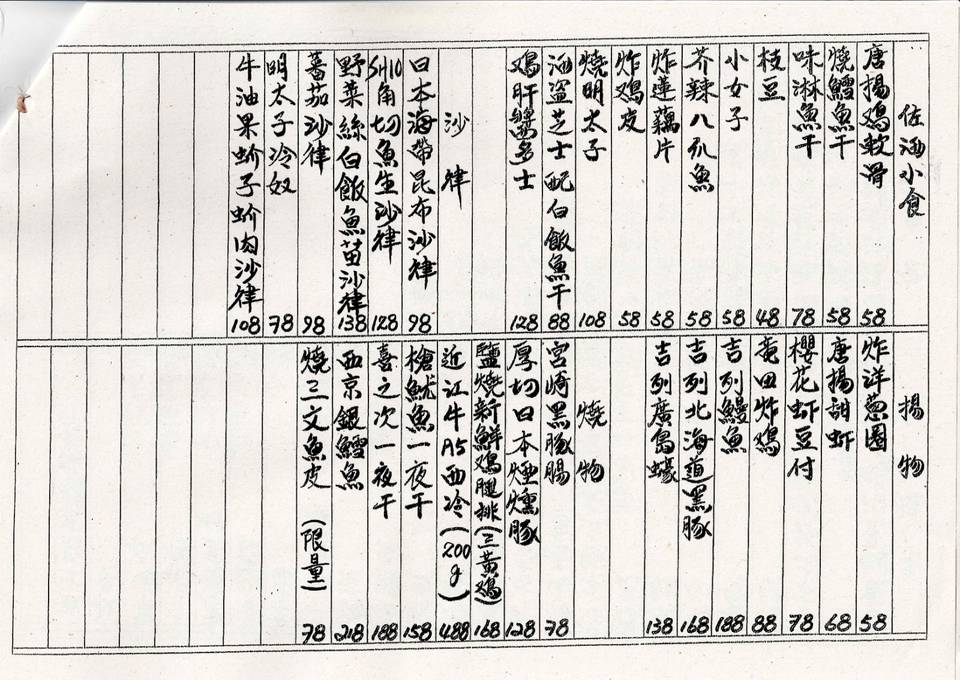 佐酒小食
唐揚鸡軟骨 58
燒鱈魚干 58
味淋魚干 78
枝豆 48
小女子 58
芥辣八爪魚 58
炸蓮藕片 58
炸鸡皮 58
燒明太子 108
酒盜芝士配白飯魚干 88
鸡肝醬多士 128
沙律
日本海帶昆布沙律 98
角切魚生沙律 128
野菜絲白飯魚苗沙律 138
蕃茄沙律 98
明太子冷奴 78
牛油果蚧子蚧肉沙律 108
揚物
炸洋葱圈 58
唐揚甜虾 68
櫻花虾豆付 78
竜田炸鸡 88
吉列鰻魚 188
吉列北海道黑豚 168
吉列廣島蠔 138
燒物
宮崎黑豚腸 78
厚切日本煙燻豚 128
鹽燒新鮮鸡腿排(三黃鸡) 168
近江牛A5西冷(200g) 488
槍魷魚一夜干 158
喜之次一夜干 188
西京銀鱈魚 218
燒三文魚皮 (限量) 78